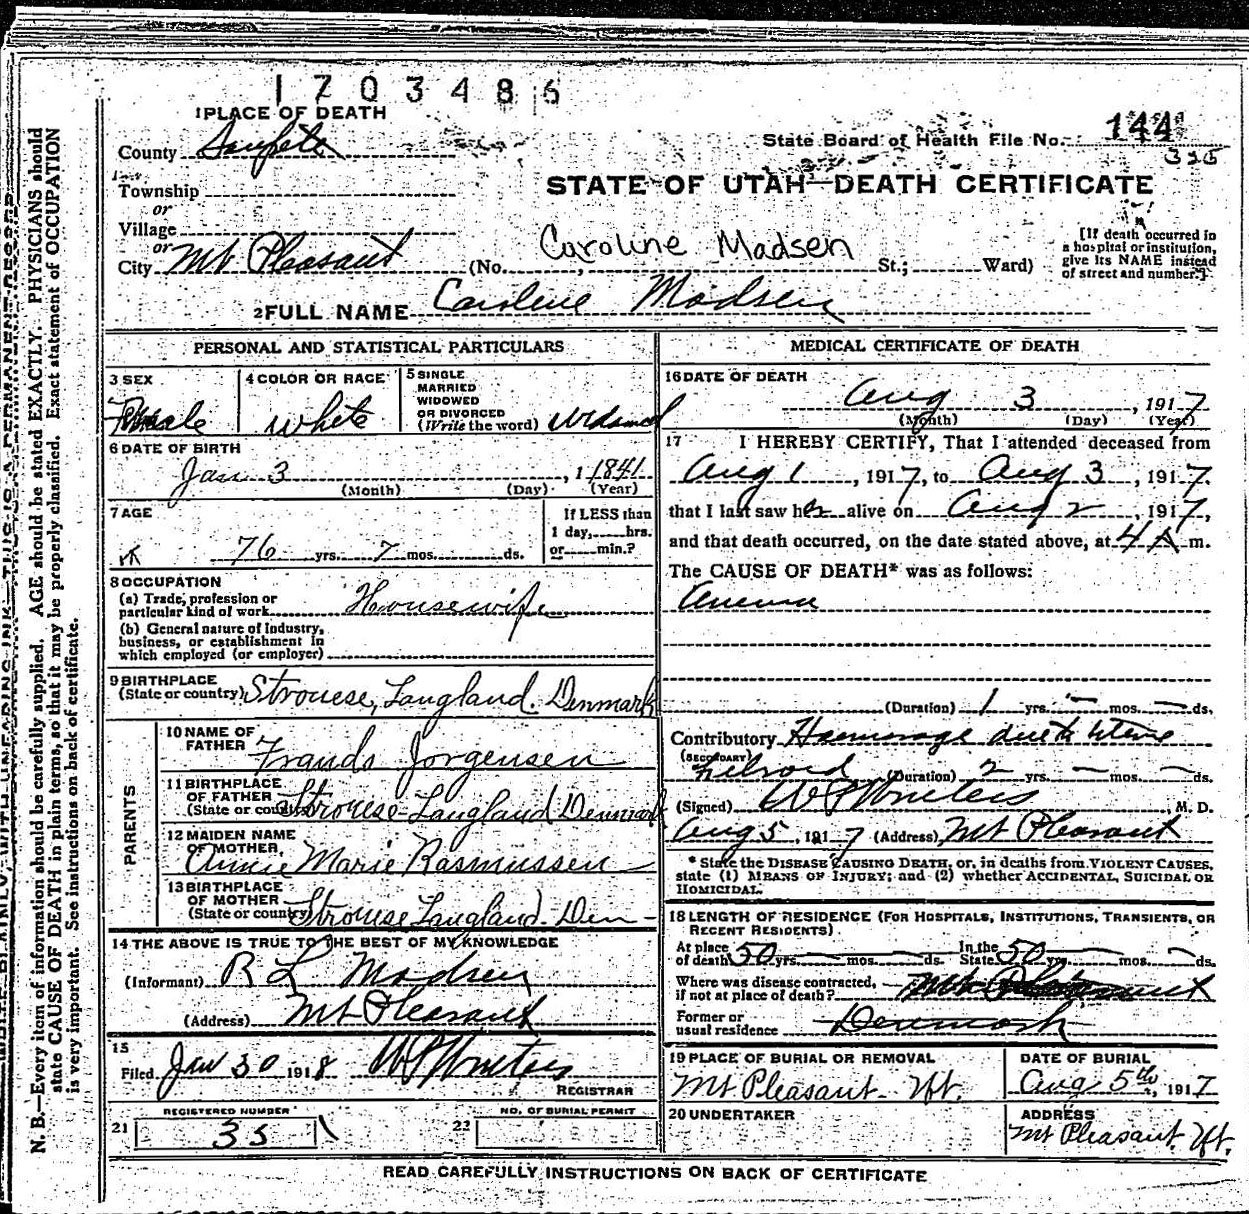 1703486
1 PLACE OF DEATH
State Board of Health File No. 144
325
County Sanpete
Township
or
Village
or
City Mt Pleasant
STATE OF UTAH—DEATH CERTIFICATE
Caroline Madsen
(No. , St.; Ward)
[If death occurred in
a hospital or institution,
give its NAME instead
of street and number.]
2 FULL NAME Carolene Madsen
PERSONAL AND STATISTICAL PARTICULARS
3 SEX
Female
4 COLOR OR RACE
White
5 SINGLE
MARRIED
WIDOWED
OR DIVORCED
(Write the word) Widowed
6 DATE OF BIRTH
Jan 3, 1 1841
(Month) (Day) (Year)
7 AGE
76 yrs. 7 mos. ds.
If LESS than
1 day, hrs.
or min.?
8 OCCUPATION
(a) Trade, profession or
particular kind of work Housewife
(b) General nature of industry,
business, or establishment in
which employed (or employer)
9 BIRTHPLACE
(State or country) Strouese, Langland. Denmark
PARENTS
10 NAME OF
FATHER Frands Jorgensen
11 BIRTHPLACE
OF FATHER
(State or country) Strouese-Langland Denmark
12 MAIDEN NAME
OF MOTHER
Annie Marie Rasmussen
13 BIRTHPLACE
OF MOTHER
(State or country) Strouese Langland-Den-
14 THE ABOVE IS TRUE TO THE BEST OF MY KNOWLEDGE
(Informant) R L Madsen
(Address) Mt Pleasant
15
Filed Jan 30 1918 W P Winters
REGISTRAR
REGISTERED NUMBER
21 35
NO. OF BURIAL PERMIT
22
MEDICAL CERTIFICATE OF DEATH
16 DATE OF DEATH
Aug 3, 1917
(Month) (Day) (Year)
17 I HEREBY CERTIFY, That I attended deceased from
Aug 1, 1917, to Aug 3, 1917.
that I last saw her alive on Aug 2, 1917,
and that death occurred, on the date stated above, at 4 A m.
The CAUSE OF DEATH* was as follows:
(Duration) 1 yrs. — mos. — ds.
Contributory Haemorage due to Uterine
(SECONDARY)
(Duration) 2 yrs. — mos. — ds.
(Signed) W P Winters M. D.
Aug 5, 1917 (Address) Mt Pleasant
* State the DISEASE CAUSING DEATH, or, in deaths from VIOLENT CAUSES,
state (1) MEANS OF INJURY; and (2) whether ACCIDENTAL, SUICIDAL OR
HOMICIDAL.
18 LENGTH OF RESIDENCE (FOR HOSPITALS, INSTITUTIONS, TRANSIENTS, OR
RECENT RESIDENTS).
At place
of death 50 yrs. — mos. — ds. In the
State 50 yrs. — mos. — ds.
Where was disease contracted,
if not at place of death? Mt Pleasant
Former or
usual residence Denmark
19 PLACE OF BURIAL OR REMOVAL
Mt Pleasant. Ut.
DATE OF BURIAL
Aug 5th, 1917
20 UNDERTAKER
ADDRESS
Mt Pleasant. Ut.
READ CAREFULLY INSTRUCTIONS ON BACK OF CERTIFICATE
N. B.—Every item of information should be carefully supplied. AGE should be stated EXACTLY. PHYSICIANS should
state CAUSE OF DEATH in plain terms, so that it may be properly classified. Exact statement of OCCUPATION
is very important. See instructions on back of certificate.